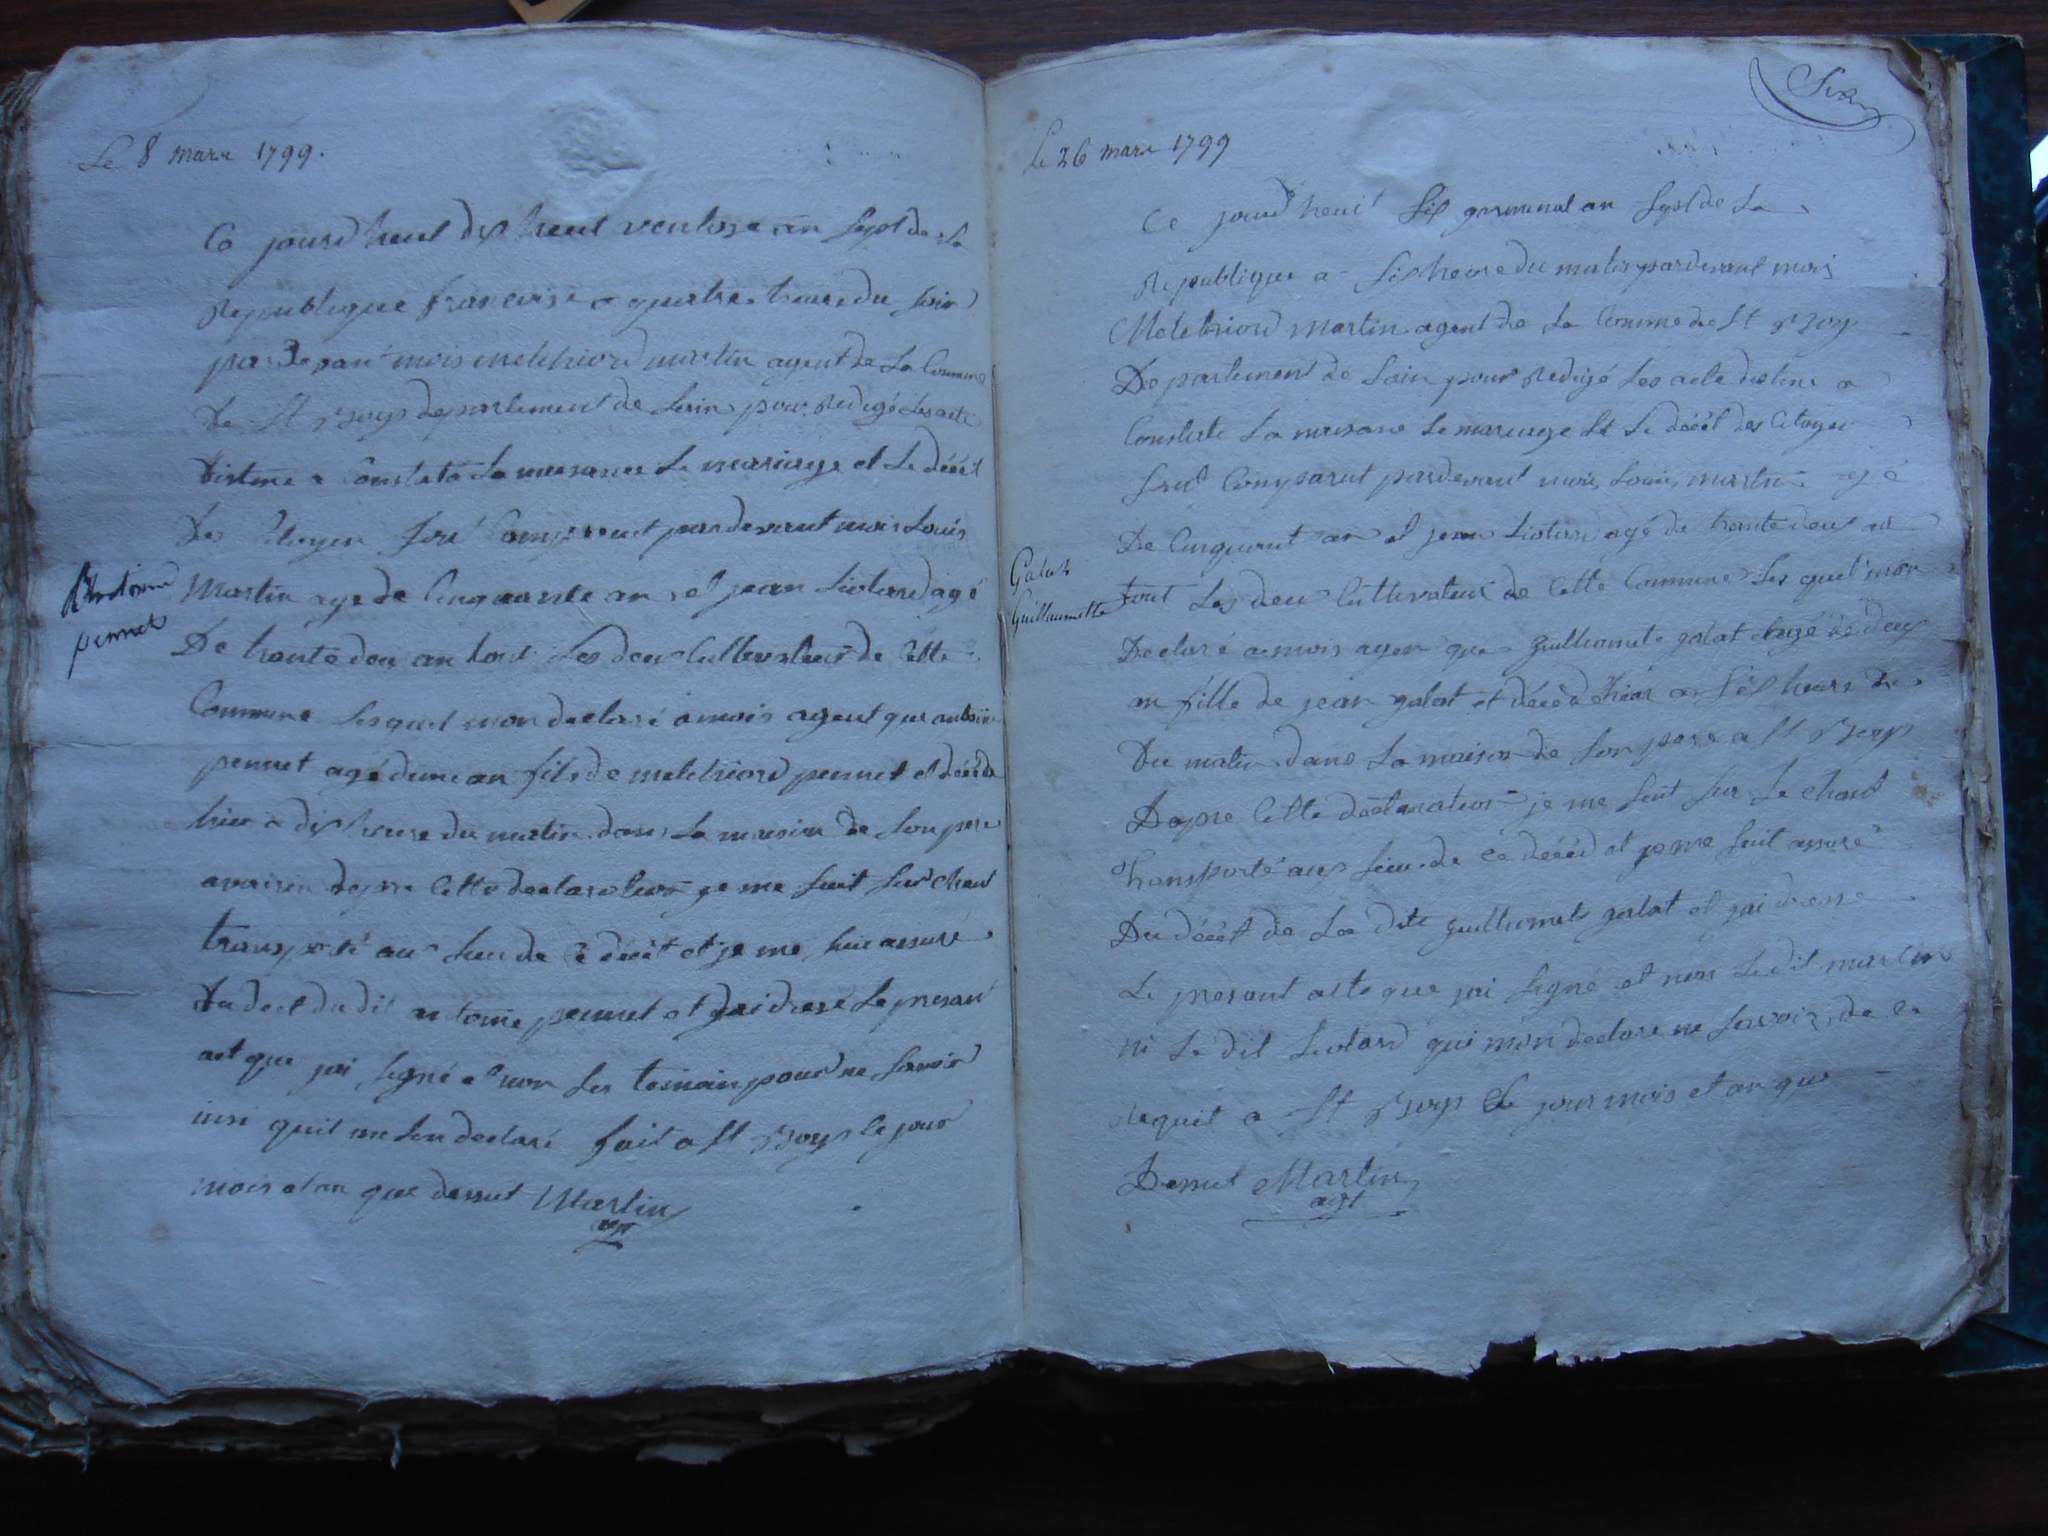 Le 8 mars 1799.
Ce jourdheui dix heuit ventose an sept de la
Republique francaise a quatre heure du soir
par devant mois melchiord martin agent de la Commune
de St departement de lain pour Redigé les acte
distiné a Constaté la naisance le mariage et le décét
des Citoyen Comparut pardevant mois Louis
Antoine
pennet
Martin age de Cinquante an et jean liotard agé
De trante deu an tout les deu Cultivateur de Cette
Commune lesquel mon declaré a mois agent que antoine
pennet agé dune an fils de melchiord pennet et décédé
hier a dix heure du matin dans la maison de son pere
dapre Cette declaration je me suit sur chant
transporté au lieu de ce décét et je me suis assuré
du decet du dit antoine pennet et jai dressé le presant
act que jai signé et non les temoin pour ne savoir
insi quil me len declaré fait a St le jour
mois et an que dessut Martin
agt
Le 26 mars 1799
Ce jourdheui six germinal an sept de la
Republique a six heure du matin pardevant mois
Melchiord Martin agent de la Commune de St
Departement de lain pour Redigé les acte distiné a
Constaté la naisance le mariage et le décét des Citoyen
Comparut pardevant mois Louis martin agé
De Cinquant an et jean liotard agé de trante deu an
Galat
Guillaumette
tout les deu Cultivateur de Cette Commune lesquel mon
Declaré a mois agen que guilliomete galat agé de deux
an fille de jean galat et décédé hier a six heure du
Du matin dans la maison de son pere a St
Dapre Cette declaration je me suit sur le chant
transporté aux lieu de ce décéd et je me suit assuré
Du décét de la dite guilliomete galat et jai dressé
le presant acte que jai signé et non le dit martin
ni le dit liotard qui mon declare ne savoir de ce
Requit a St le jour mois et an que
Dessut Martin
agt